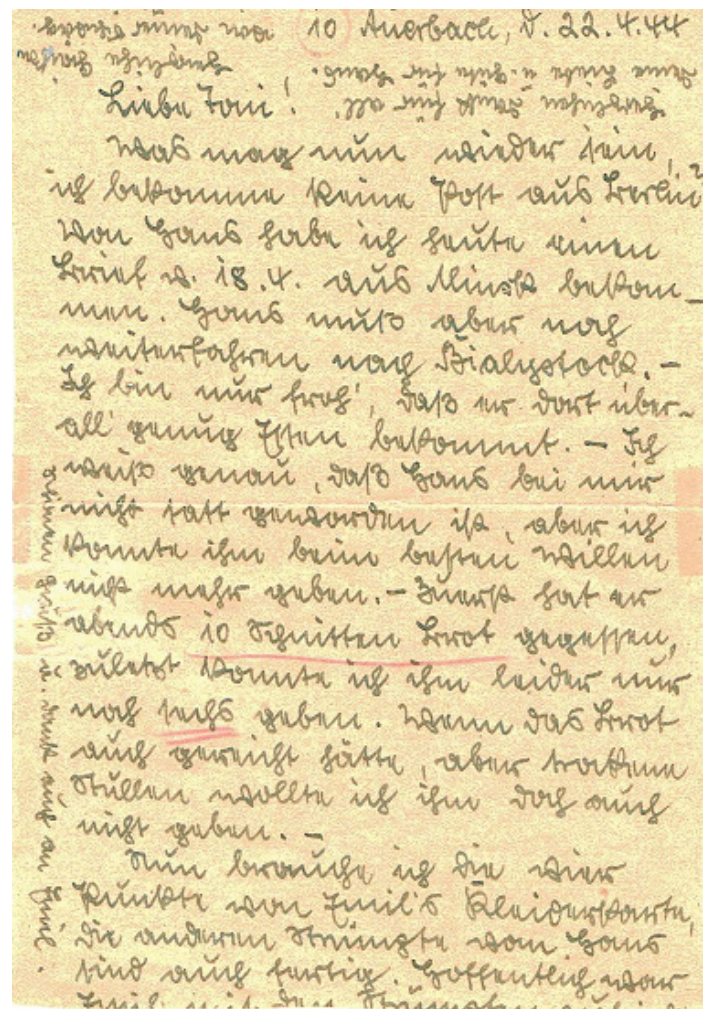 10 Auerbach, d. 22.4.44
Liebe Toni!
Was mag nun wieder sein,
ich bekomme keine Post aus Berlin?
Von Hans habe ich heute einen
Brief v. 18.4. aus Minsk bekom-
men. Hans muß aber noch
weiterfahren nach Bialystock. –
Ich bin nur froh, daß er dort über-
all genug Essen bekommt. – Ich
weiß genau, daß Hans bei mir
nicht satt geworden ist, aber ich
konnte ihm beim besten Willen
nicht mehr geben. – Zuerst hat er
abends 10 Schnitten Brot gegessen,
zuletzt konnte ich ihm leider nur
noch sechs geben. Wenn das Brot
auch gereicht hätte, aber trockene
Stullen wollte ich ihm doch auch
nicht geben. –
Nun brauche ich die vier
Punkte von Emil's Kleiderkarte,
die anderen Strümpfe von Hans
sind auch fertig. Hoffentlich war
Emil mit den Strümpfen
u. Dank auch an Emil.